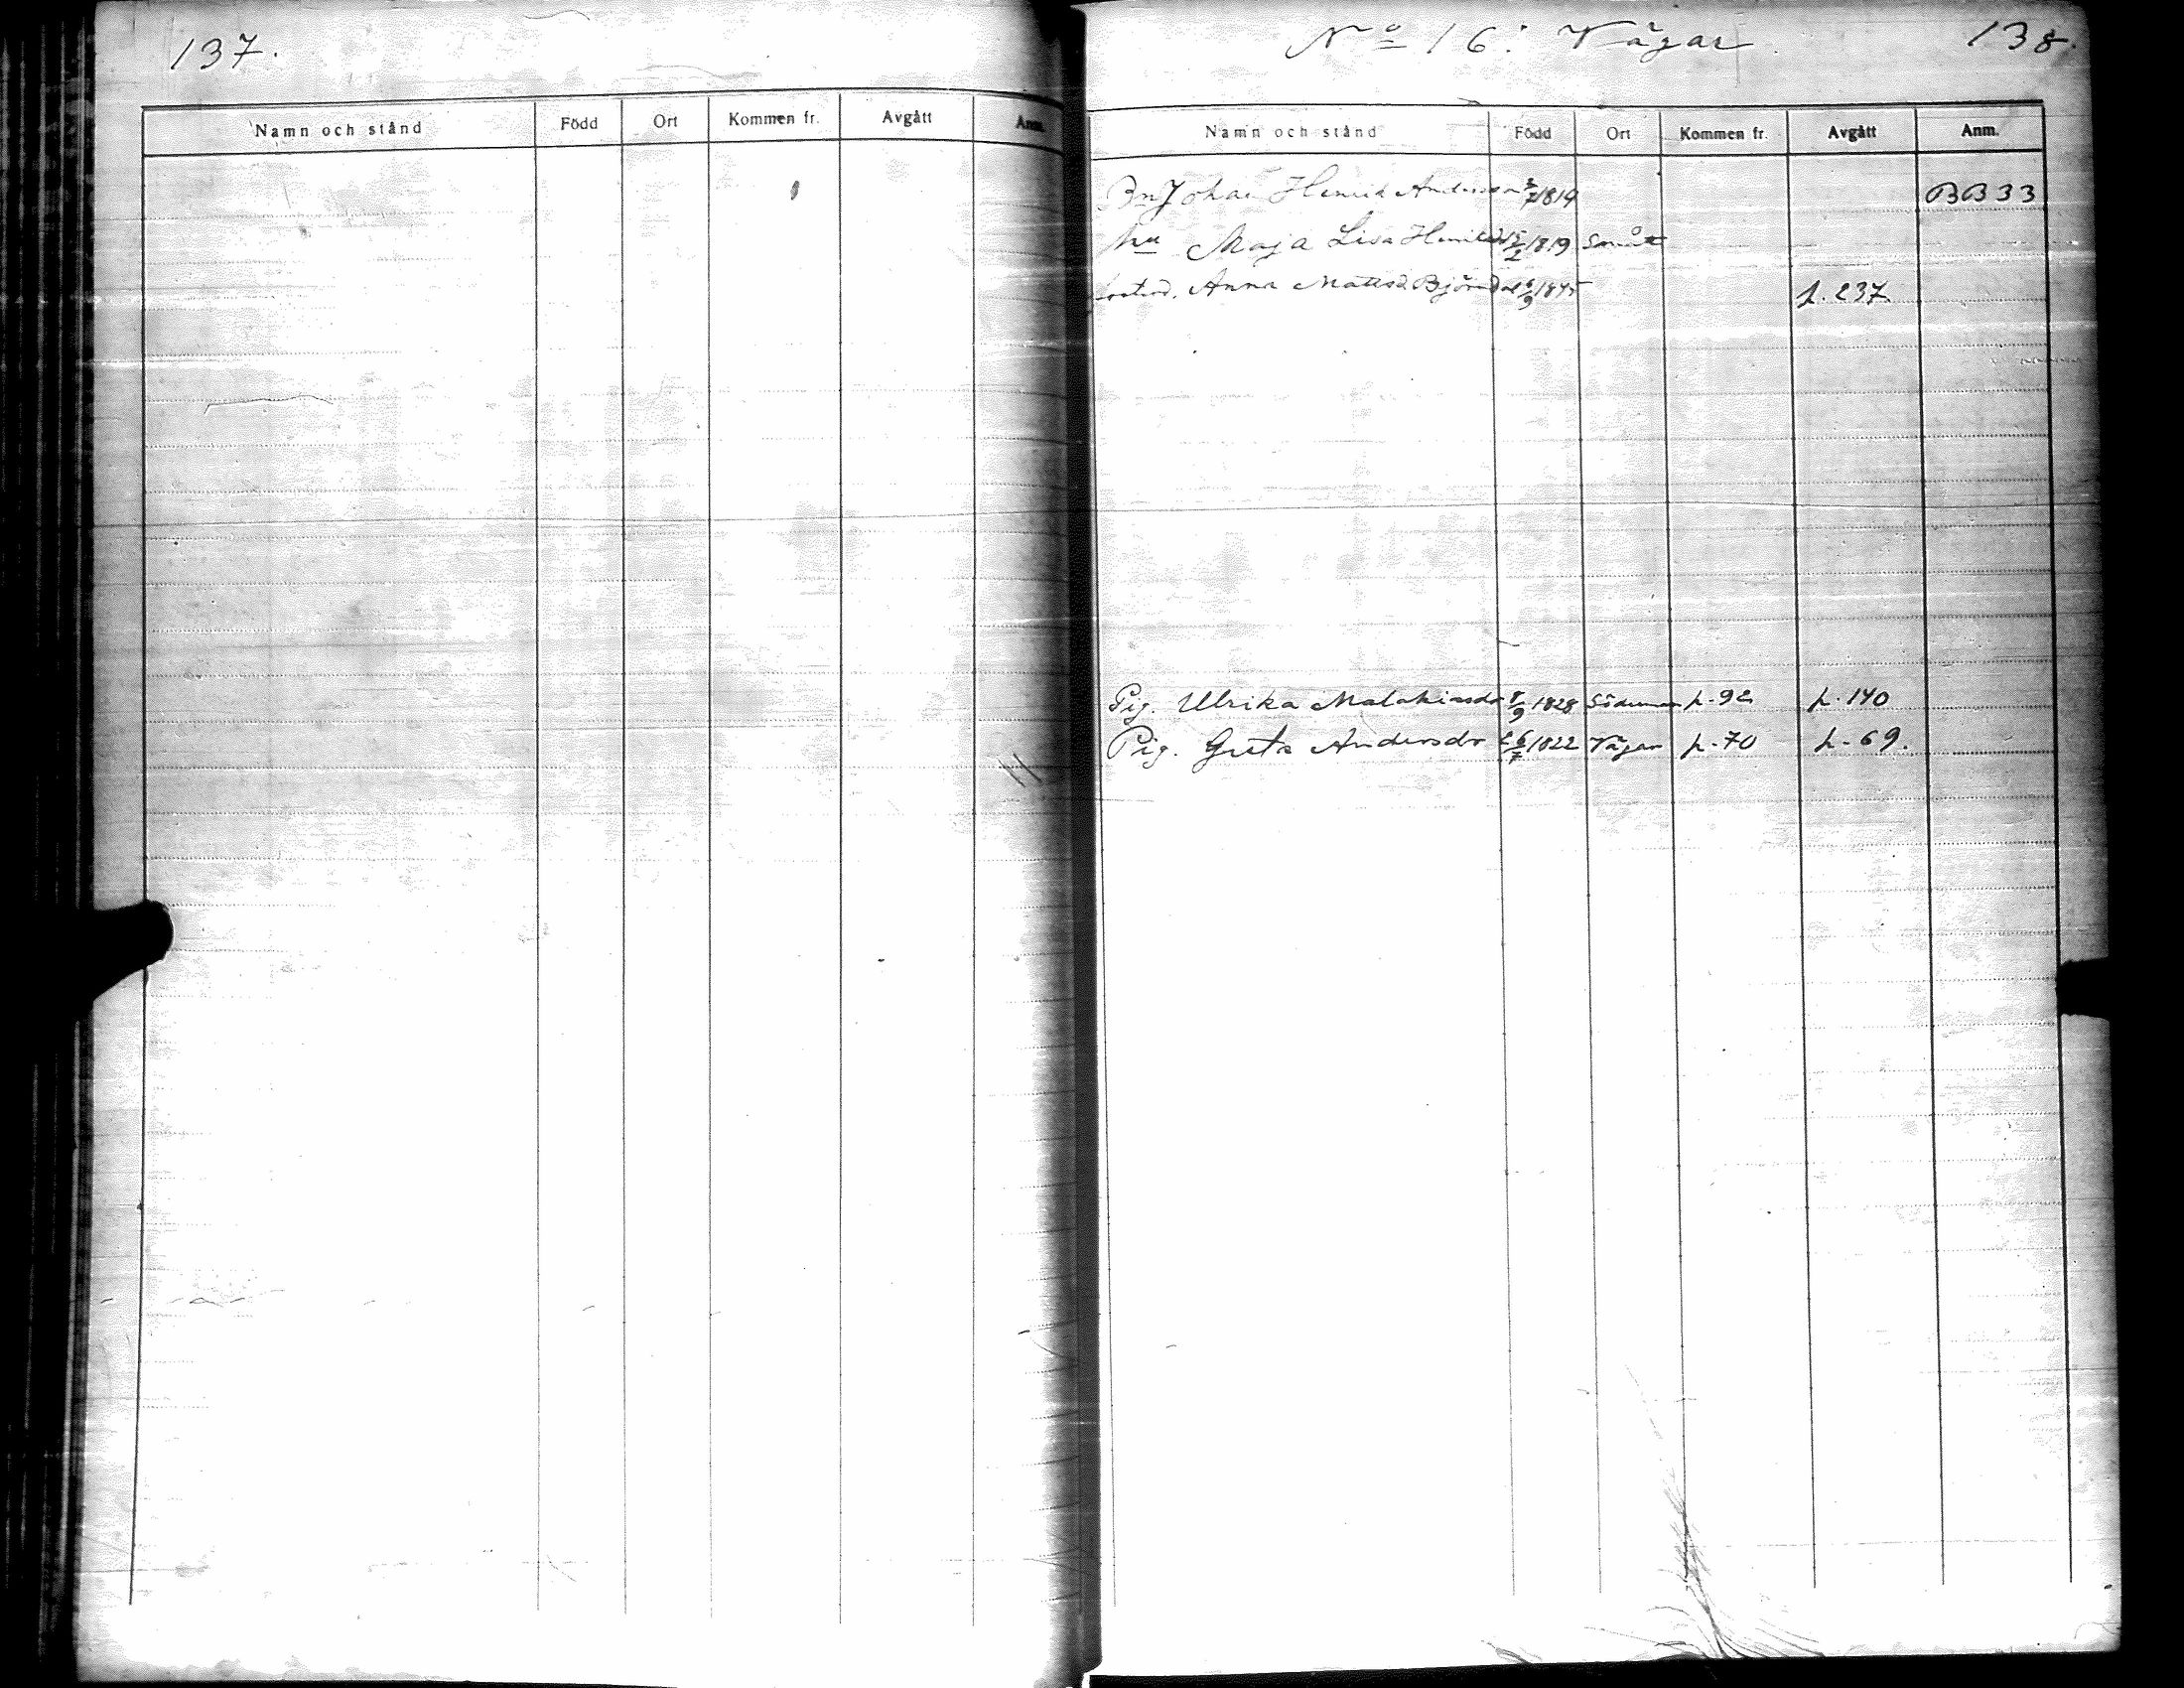 137.
Namn och stånd Född Ort Kommen fr. Avgått Anm.
No 16: Vägar 138.
Namn och stånd Född Ort Kommen fr. Avgått Anm.
Bn Johan Henrik Andersson 3/7 1819 BB 33
hu Maja Lisa Henriksd 15/2 1819
Anna Mattsd. Björndal 1845 p. 237
Pig. Ulrika Malakiasdr 8/9 1828 p. 92 p. 140
Pig. Greta Andersdr 26/7 1822 Vägar p. 70 p. 69.